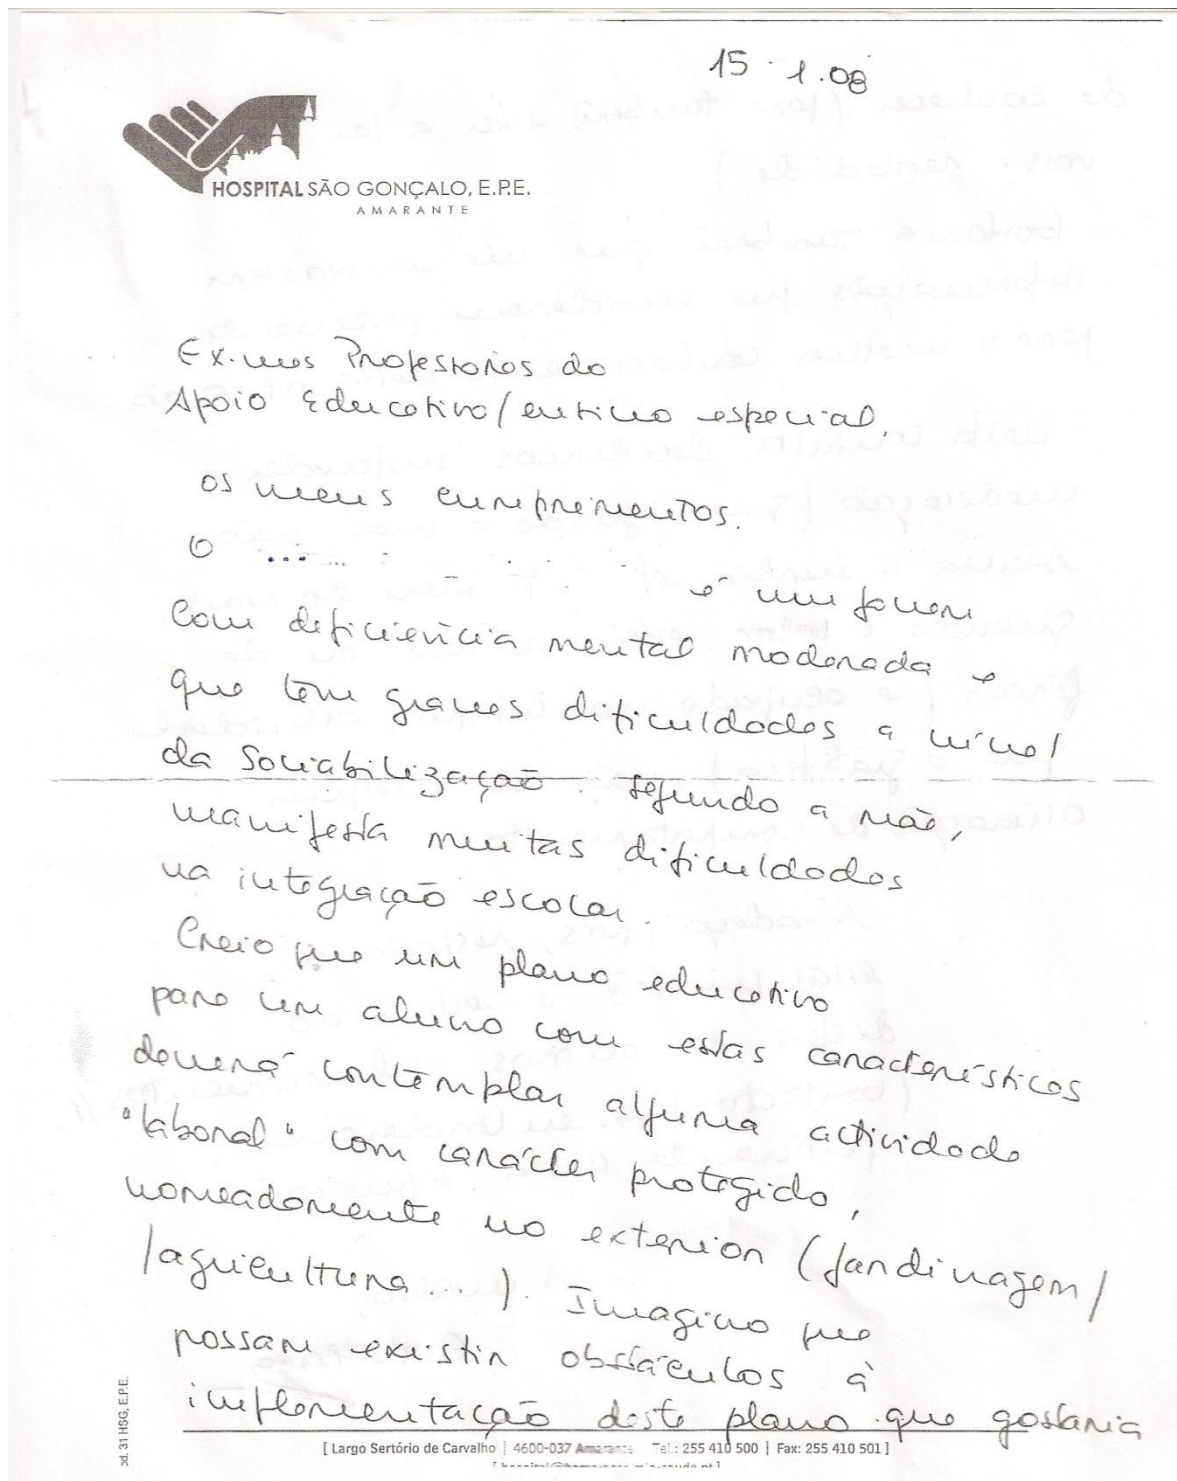 15.1.08
HOSPITAL SÃO GONÇALO, E.P.E.
AMARANTE
Ex.mos Professores do
Apoio Educativo/ensino especial,
os meus cumprimentos.
O ... ...
é um jovem
com deficiência mental moderada e
que tem graves dificuldades a nível
da Sociabilização. Segundo a mãe,
manifesta muitas dificuldades
na integração escolar.
Creio que um plano educativo
para um aluno com estas características
deverá contemplar alguma actividade
"laboral" com carácter protegido,
nomeadamente no exterior (jardinagem/
/agricultura...). Imagino que
possam existir obstáculos à
implementação deste plano que gostaria
[ Largo Sertório de Carvalho | 4600-037 Amarante Tel.: 255 410 500 | Fax: 255 410 501 ]
od. 31 HSG, E.P.E.